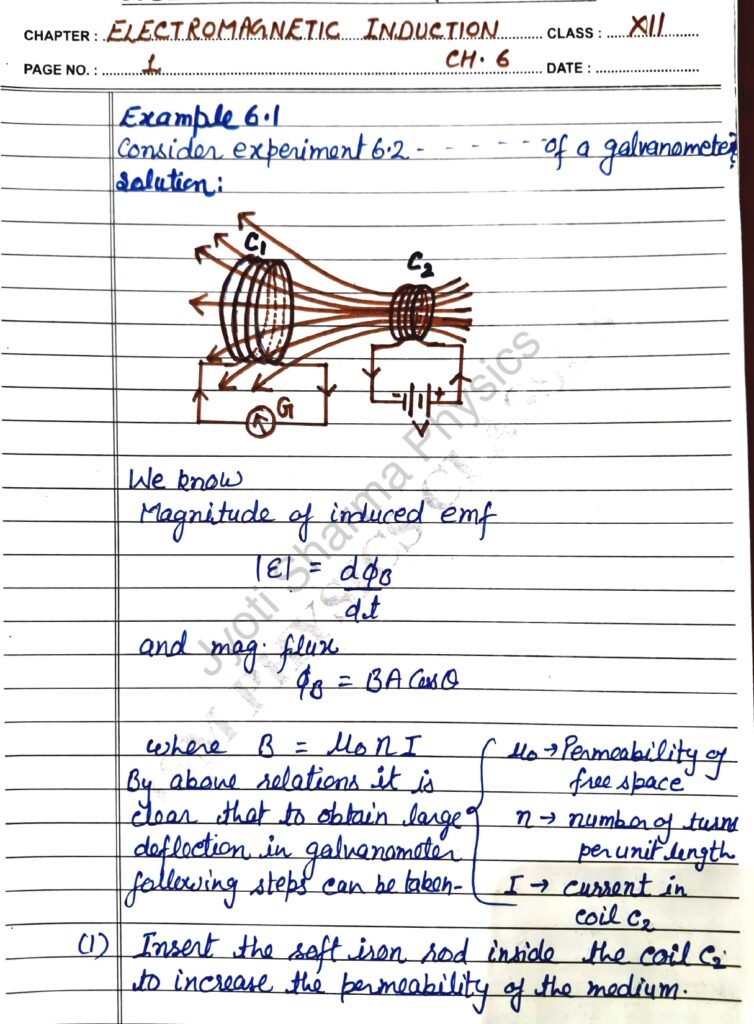 CHAPTER : ELECTROMAGNETIC INDUCTION CLASS : XII
PAGE NO. : 1 CH. 6 DATE :
Example 6.1
Consider experiment 6.2 - - - - - - of a galvanometer?
Solution:
C1
C2
G
- +
V
We know
Magnitude of induced emf
|ε| = dϕB
dt
and mag. flux
ϕB = BA Cosθ
where B = μ0 n I
μ0 → Permeability of
free space
n → number of turns
per unit length
I → current in
coil C2
By above relations it is
clear that to obtain large
deflection in galvanometer
following steps can be taken-
(1) Insert the soft iron rod inside the coil C2
to increase the permeability of the medium.
Jyoti Sharma Physics